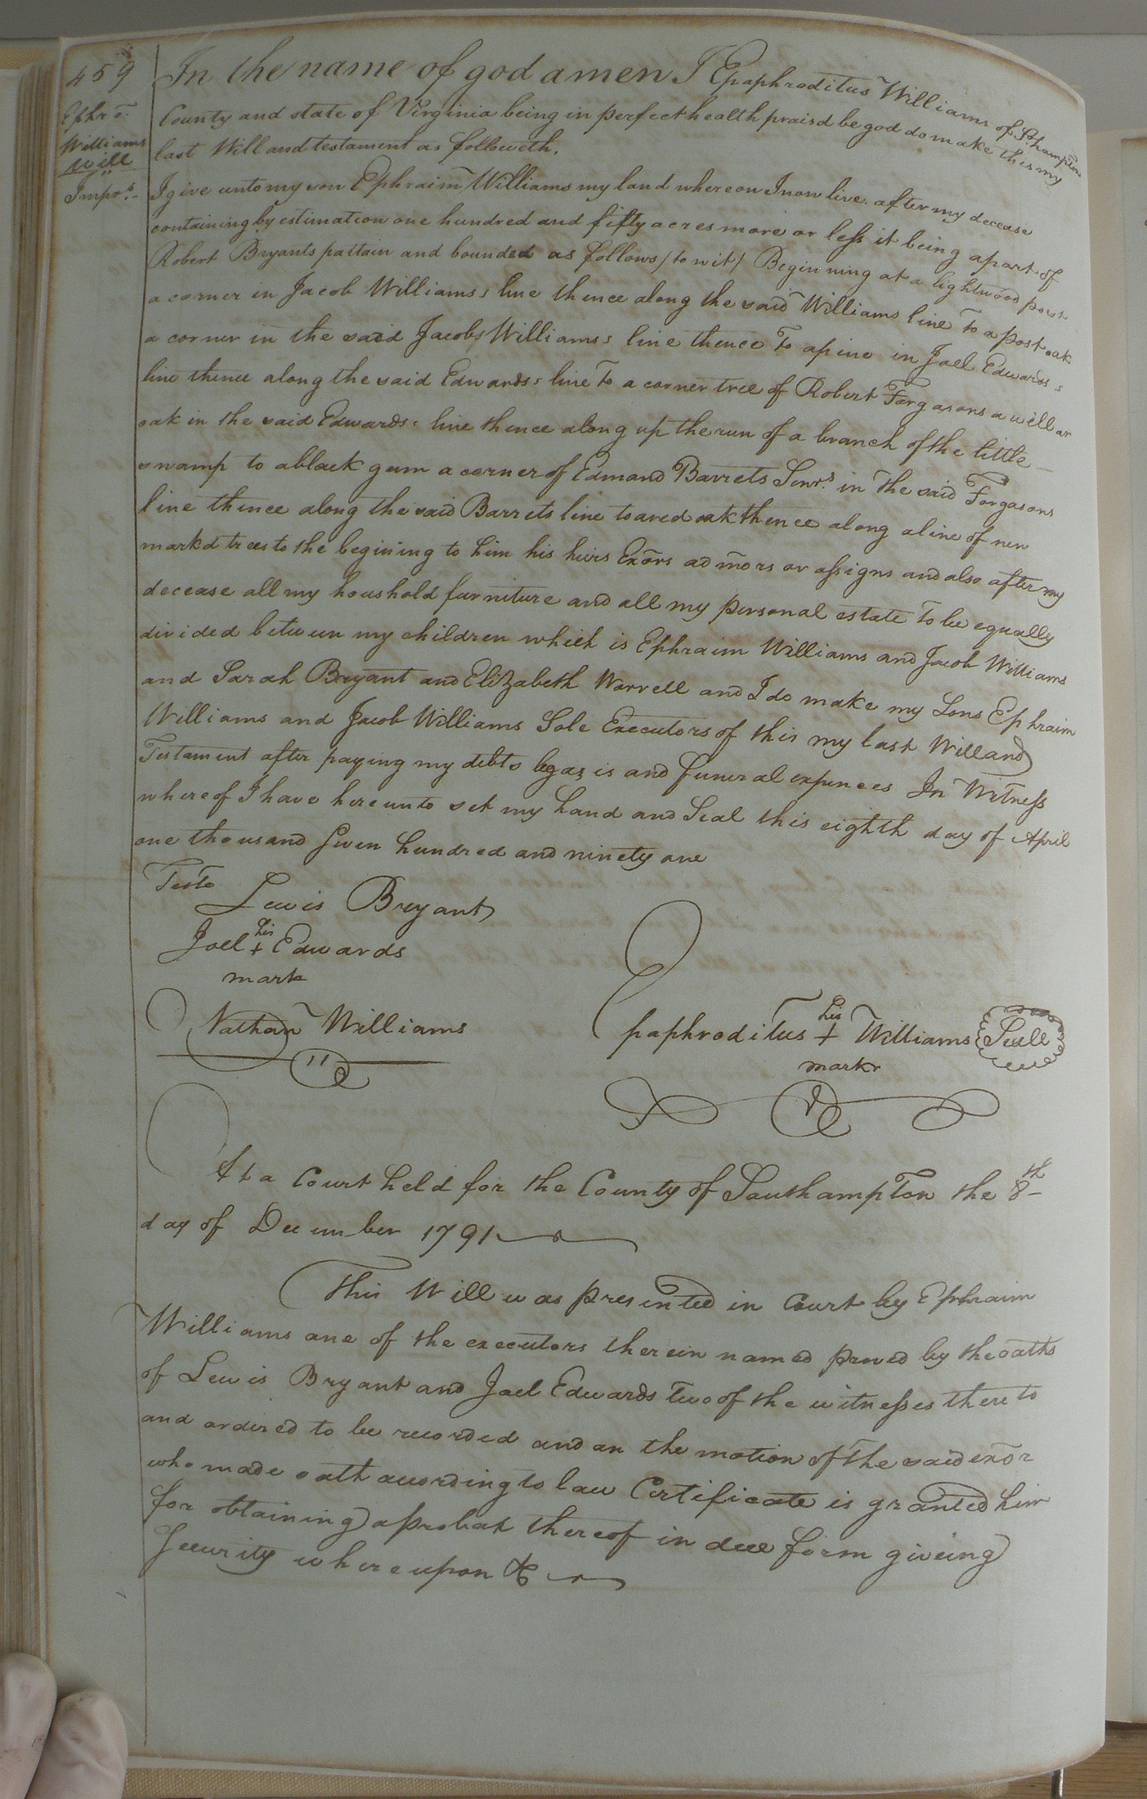 459
Ephro:
Williams
Will
Impos:
In the name of god amen I Epaphroditus Williams of S.hampton
County and state of Virginia being in perfect health praisd be god do make this my
last Will and testament as followeth.
I give unto my son Ephraim Williams my land whereon I now live after my decease
containing by estimation one hundred and fifty acres more or less it being apart of
Robert Bryants pattain and bounded as follows /to wit/ Beginning at a lightwood post
a corner in Jacob Williams's line thence along the said Williams line To a post oak
a corner in the said Jacobs Williams's line thence To a pine in Joel Edwards's
line thence along the said Edwards's line To a corner tree of Robert Forgasons a willar
oak in the said Edwards's line thence along up the run of a branch of the little
swamp to a black gum a corner of Edmand Barrets Senrs. in the said Forgasons
line thence along the said Barrets line to a red oak thence along a line of new
markd trees to the begining to him his heirs Exors admors or assigns and also after my
decease all my houshold furniture and all my personal estate To be equally
divided between my children which is Ephraim Williams and Jacob Williams
and Sarah Bryant and Elizabeth Worrell and I do make my Sons Ephraim
Williams and Jacob Williams Sole Executors of this my last Will and
Testament after paying my debts legazis and funeral expences In Witness
whereof I have hereunto set my hand and Seal this eighth day of April
one thousand Seven hundred and ninety one
Teste
Lewis Bryant
his
Joel + Edwards
mark
Nathan Williams
his
Epaphroditus + Williams Seall
mark
At a Court held for the County of Southampton the 8th
day of December 1791
This Will was presented in Court by Ephraim
Williams one of the executors therein named proved by the oaths
of Lewis Bryant and Joel Edwards Two of the witnesses there to
and ordered to be recorded and on the motion of the said exor
who made oath according to law Certificate is granted him
for obtaining a probat thereof in due form giveing
Security whereupon &c